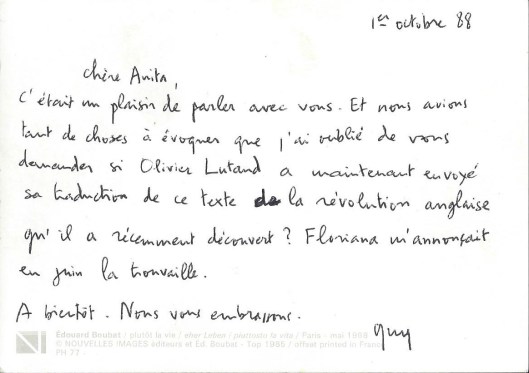 1er octobre 88
Chère Anita,
C'était un plaisir de parler avec vous. Et nous avions
tant de choses à évoquer que j'ai oublié de vous
demander si Olivier Lutaud a maintenant envoyé
sa traduction de ce texte de la révolution anglaise
qu'il a récemment découvert ? Floriana m'annonçait
en juin la trouvaille.
A bientôt. Nous vous embrassons.
guy
Édouard Boubat / plutôt la vie / eher Leben / piuttosto la vita / Paris - mai 1968
© NOUVELLES IMAGES éditeurs et Éd. Boubat - Top 1988 / offset printed in France
PH 77